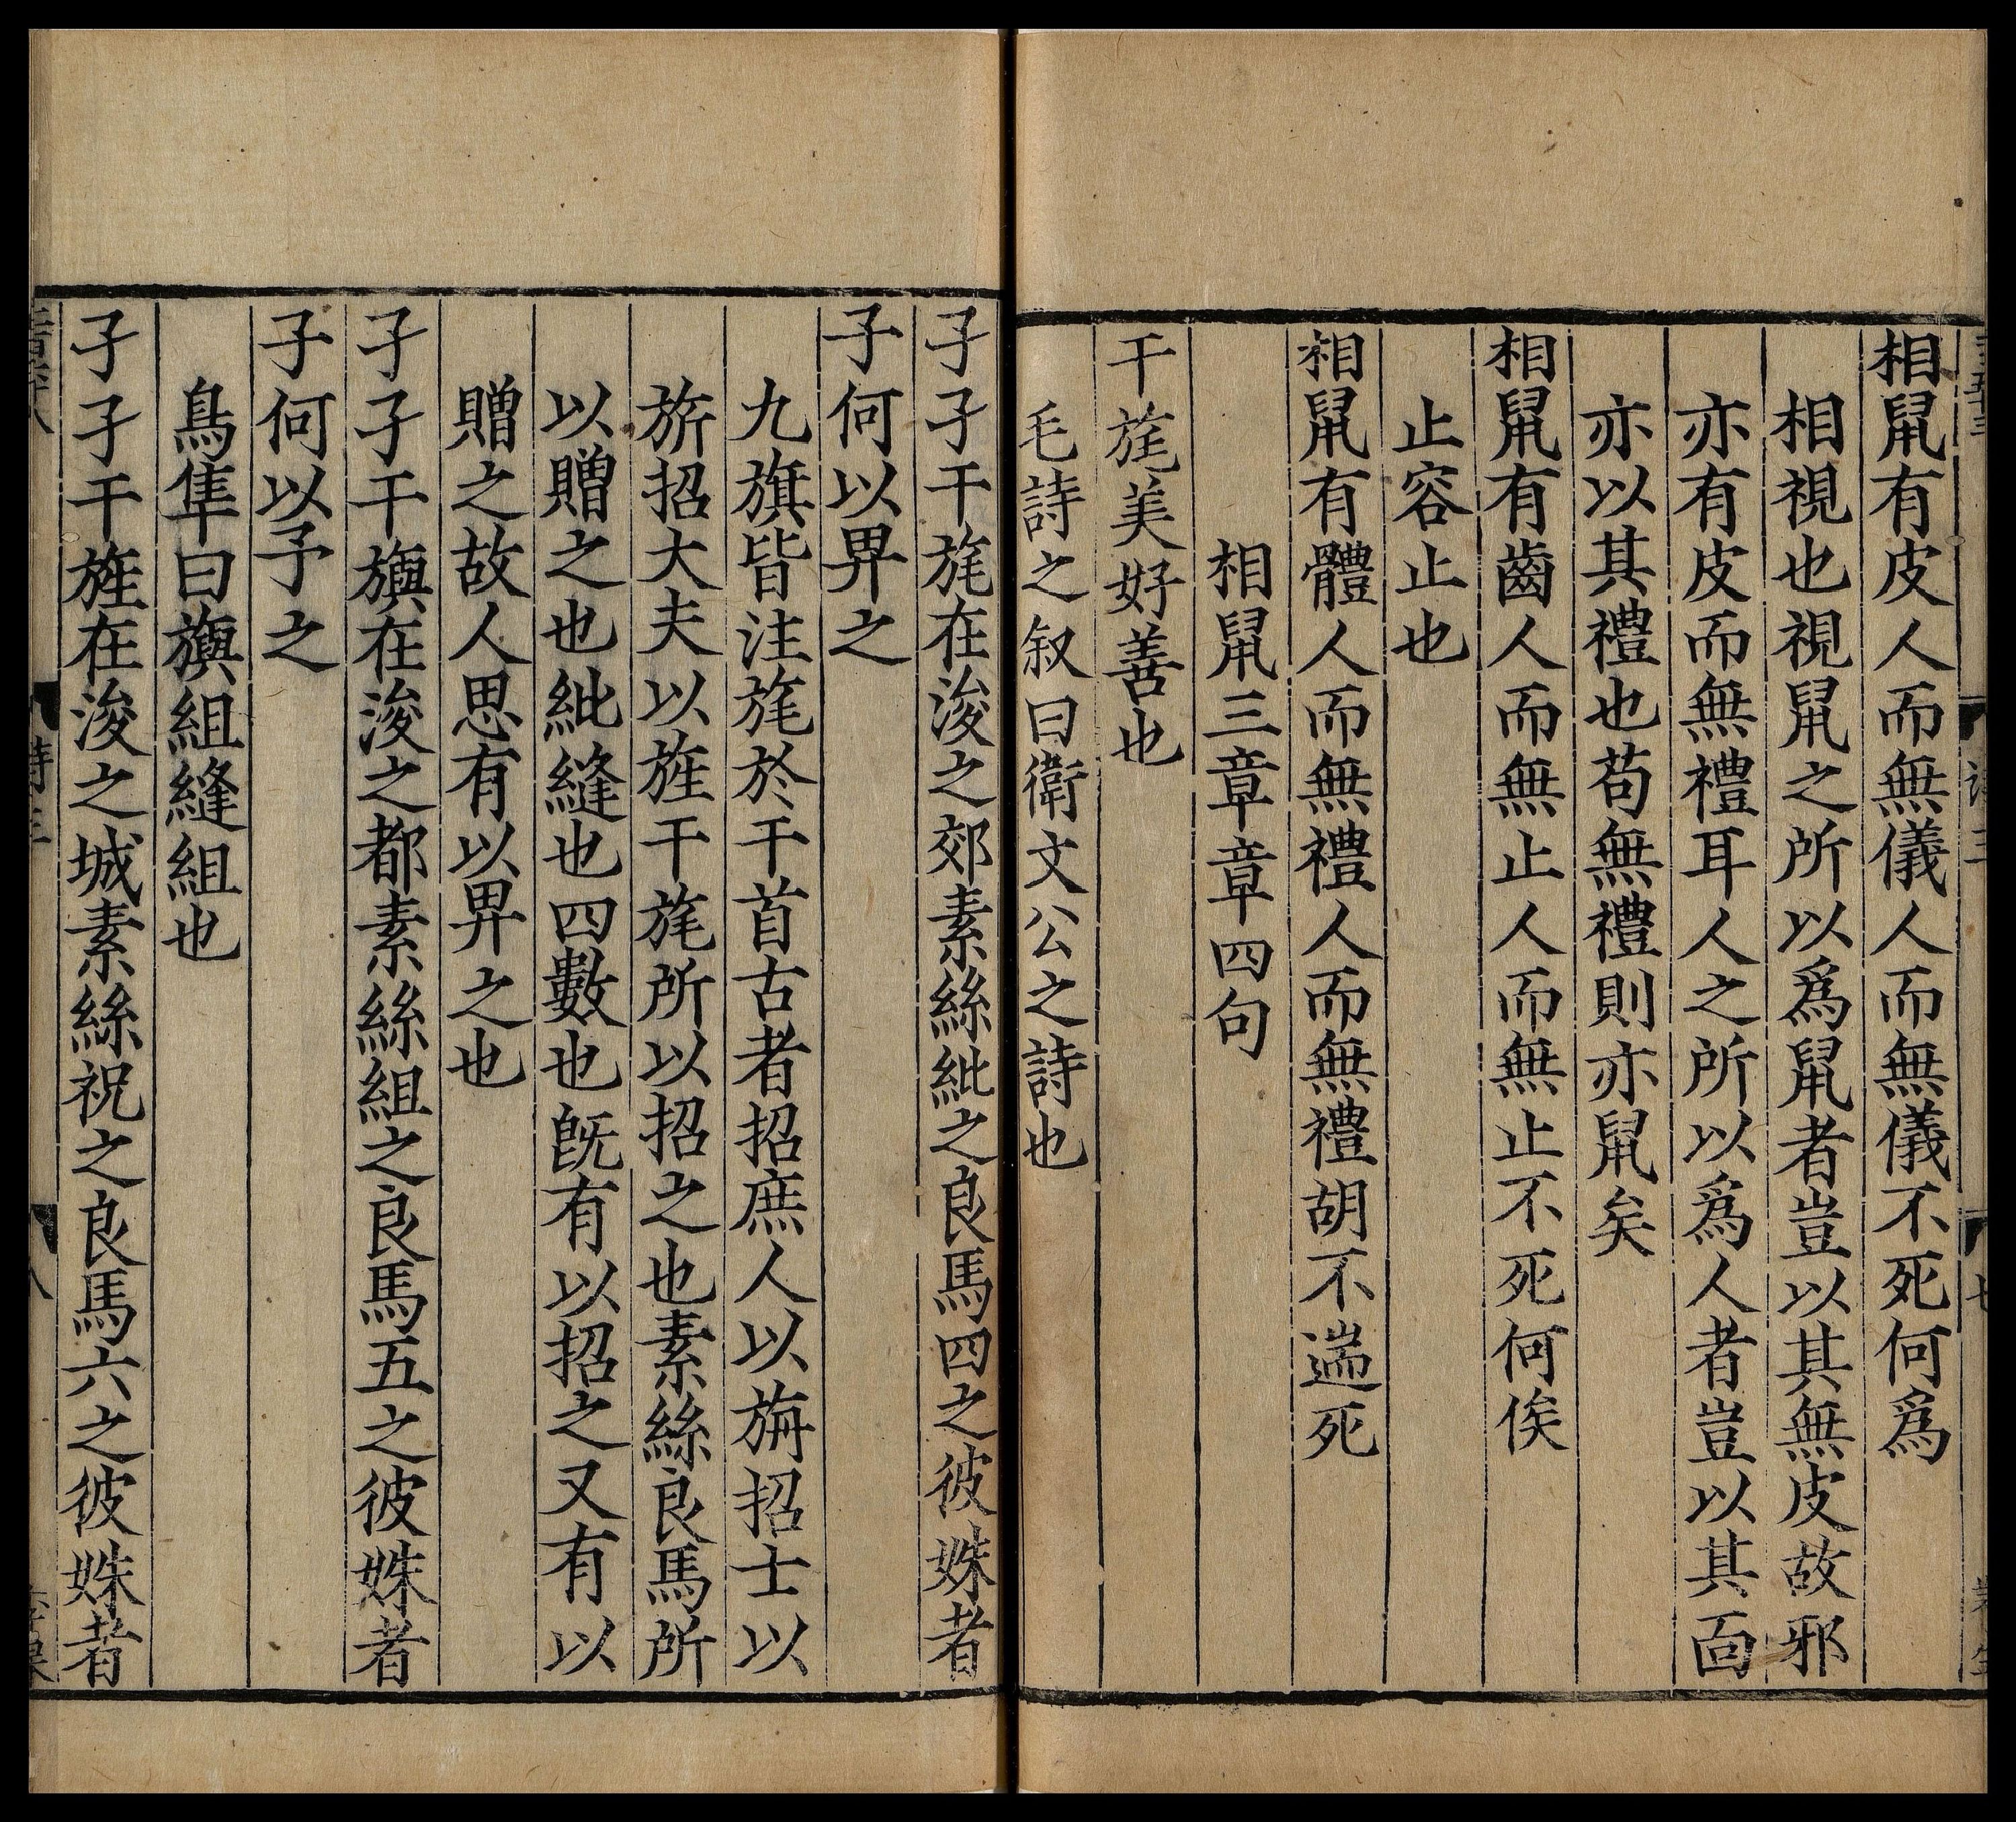 相鼠有皮人而無儀人而無儀不死何爲
相視也視鼠之所以爲鼠者豈以其無皮故邪
亦有皮而無禮耳人之所以爲人者豈以其靣
亦以其禮也苟無禮則亦鼠矣
相鼠有齒人而無止人而無止不死何俟
止容止也
相鼠有體人而無禮人而無禮胡不遄死
相鼠三章章四句
干旄美好善也
毛詩之叙曰衛文公之詩也
孑孑干旄在浚之郊素絲紕之良馬四之彼姝者
子何以畀之
九旗皆注旄於干首古者招庶人以旃招士以
旂招大夫以旌干旄所以招之也素絲良馬所
以贈之也紕縫也四數也旣有以招之又有以
贈之故人思有以畀之也
孑孑干旟在浚之都素絲組之良馬五之彼姝者
子何以予之
鳥隼曰旟組縫組也
孑孑干旌在浚之城素絲祝之良馬六之彼姝者